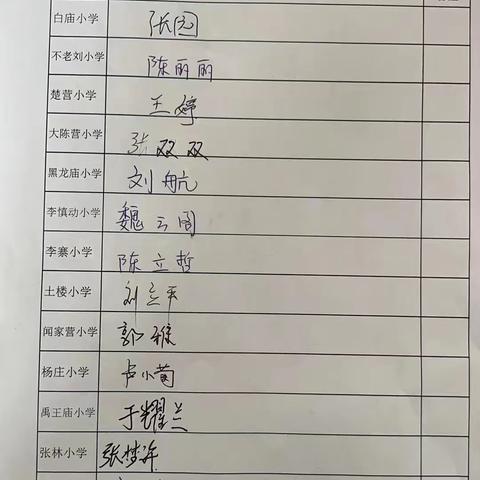 白庙小学 张园
不老刘小学 陈丽丽
楚营小学 王婷
大陈营小学 张双双
黑龙庙小学 刘航
李慎动小学 魏云阁
李寨小学 陈立哲
土楼小学 刘立平
闻家营小学 郭雅
杨庄小学 卢小菊
禹王庙小学 于耀兰
张林小学 张梦